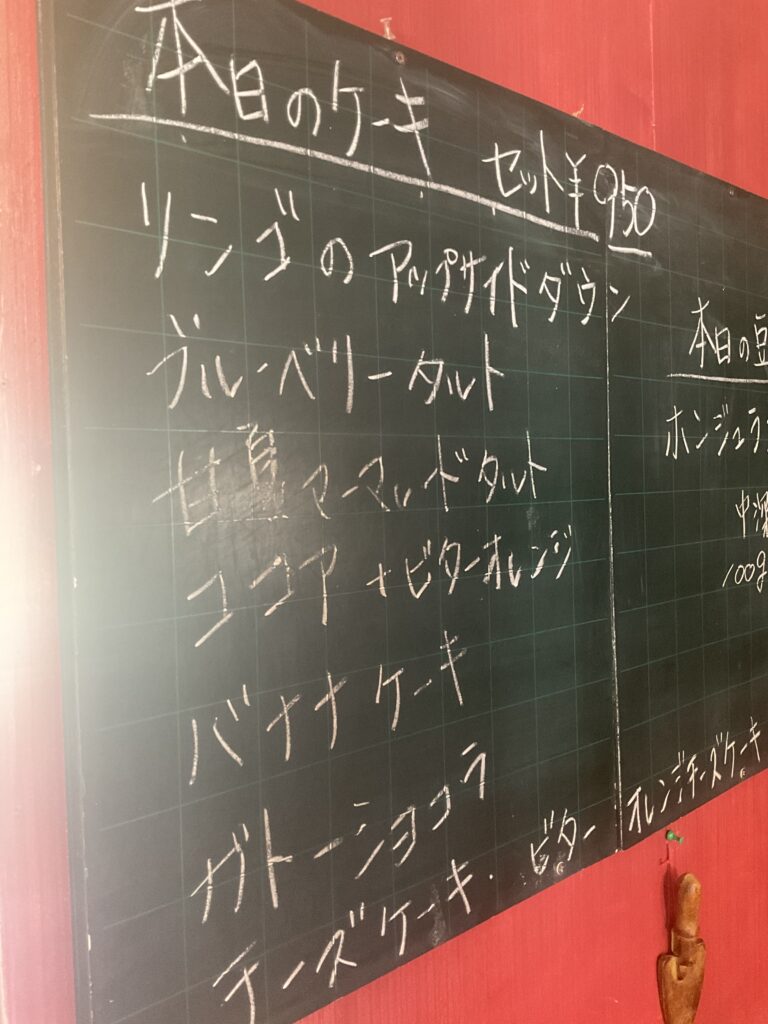 本日のケーキ セット¥950
リンゴのアップサイドダウン
ブルーベリータルト
甘夏マーマレードタルト
ココア+ビターオレンジ
バナナケーキ
ガトーショコラ
チーズケーキ・ビターオレンジチーズケーキ
本日の豆
ホンジュラ
中深
100g